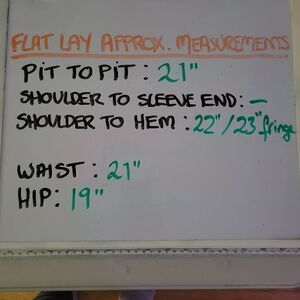 FLAT LAY APPROX. MEASUREMENTS
PIT TO PIT : 21"
SHOULDER TO SLEEVE END: —
SHOULDER TO HEM : 22"/23" fringe
WAIST : 21"
HIP: 19"